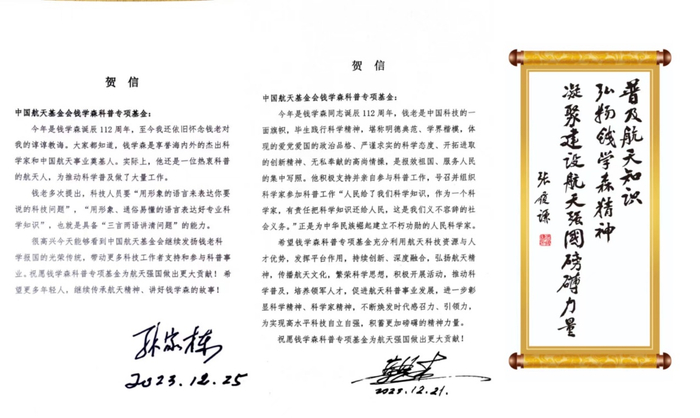 贺 信
中国航天基金会钱学森科普专项基金：
今年是钱学森诞辰 112 周年，至今我还依旧怀念钱老对
我的谆谆教诲。大家都知道，钱学森是享誉海内外的杰出科
学家和中国航天事业奠基人。实际上，他还是一位热衷科普
的航天人，为推动科学普及做了大量工作。
钱老多次提出，科技人员要“用形象的语言来表达你要
说的科技问题”，“用形象、通俗易懂的语言表达好专业科
学知识”，也就是具备“三言两语讲清问题”的能力。
很高兴今天能够看到中国航天基金会继续发扬钱老科
学报国的光荣传统，带动更多科技工作者支持和参与科普事
业。祝愿钱学森科普专项基金为航天强国做出更大贡献！希
望更多年轻人，继续传承航天精神、讲好钱学森的故事！
孙家栋
2023.12.25
贺 信
中国航天基金会钱学森科普专项基金：
今年是钱学森同志诞辰 112 周年，钱老是中国科技的一
面旗帜，毕生践行科学精神，堪称明德典范、学界楷模，体
现的爱党爱国的政治品格、严谨求实的科学态度、开拓进取
的创新精神、无私奉献的高尚情操，是报效祖国、服务人民
的集中写照。他积极支持并亲自参与科普工作，号召并组织
科学家参加科普工作“人民给了我们科学知识，作为一个科
学家，有责任把科学知识还给人民，这是我们义不容辞的社
会义务。”正是为中华民族崛起建立不朽功勋的人民科学家。
希望钱学森科普专项基金充分利用航天科技资源与人
才优势，发挥平台作用，持续创新、深度融合，弘扬航天精
神，传播航天文化，繁荣科学思想，积极开展活动，推动科
学普及，培养领军人才，促进航天科普事业发展，进一步彰
显科学精神、科学家精神，不断焕发时代感召力、引领力，
为实现高水平科技自立自强，积蓄更加磅礴的精神力量。
祝愿钱学森科普专项基金为航天强国做出更大贡献！
2023.12.21.
普及航天知识
弘扬钱学森精神
凝聚建设航天强国磅礴力量
张履谦